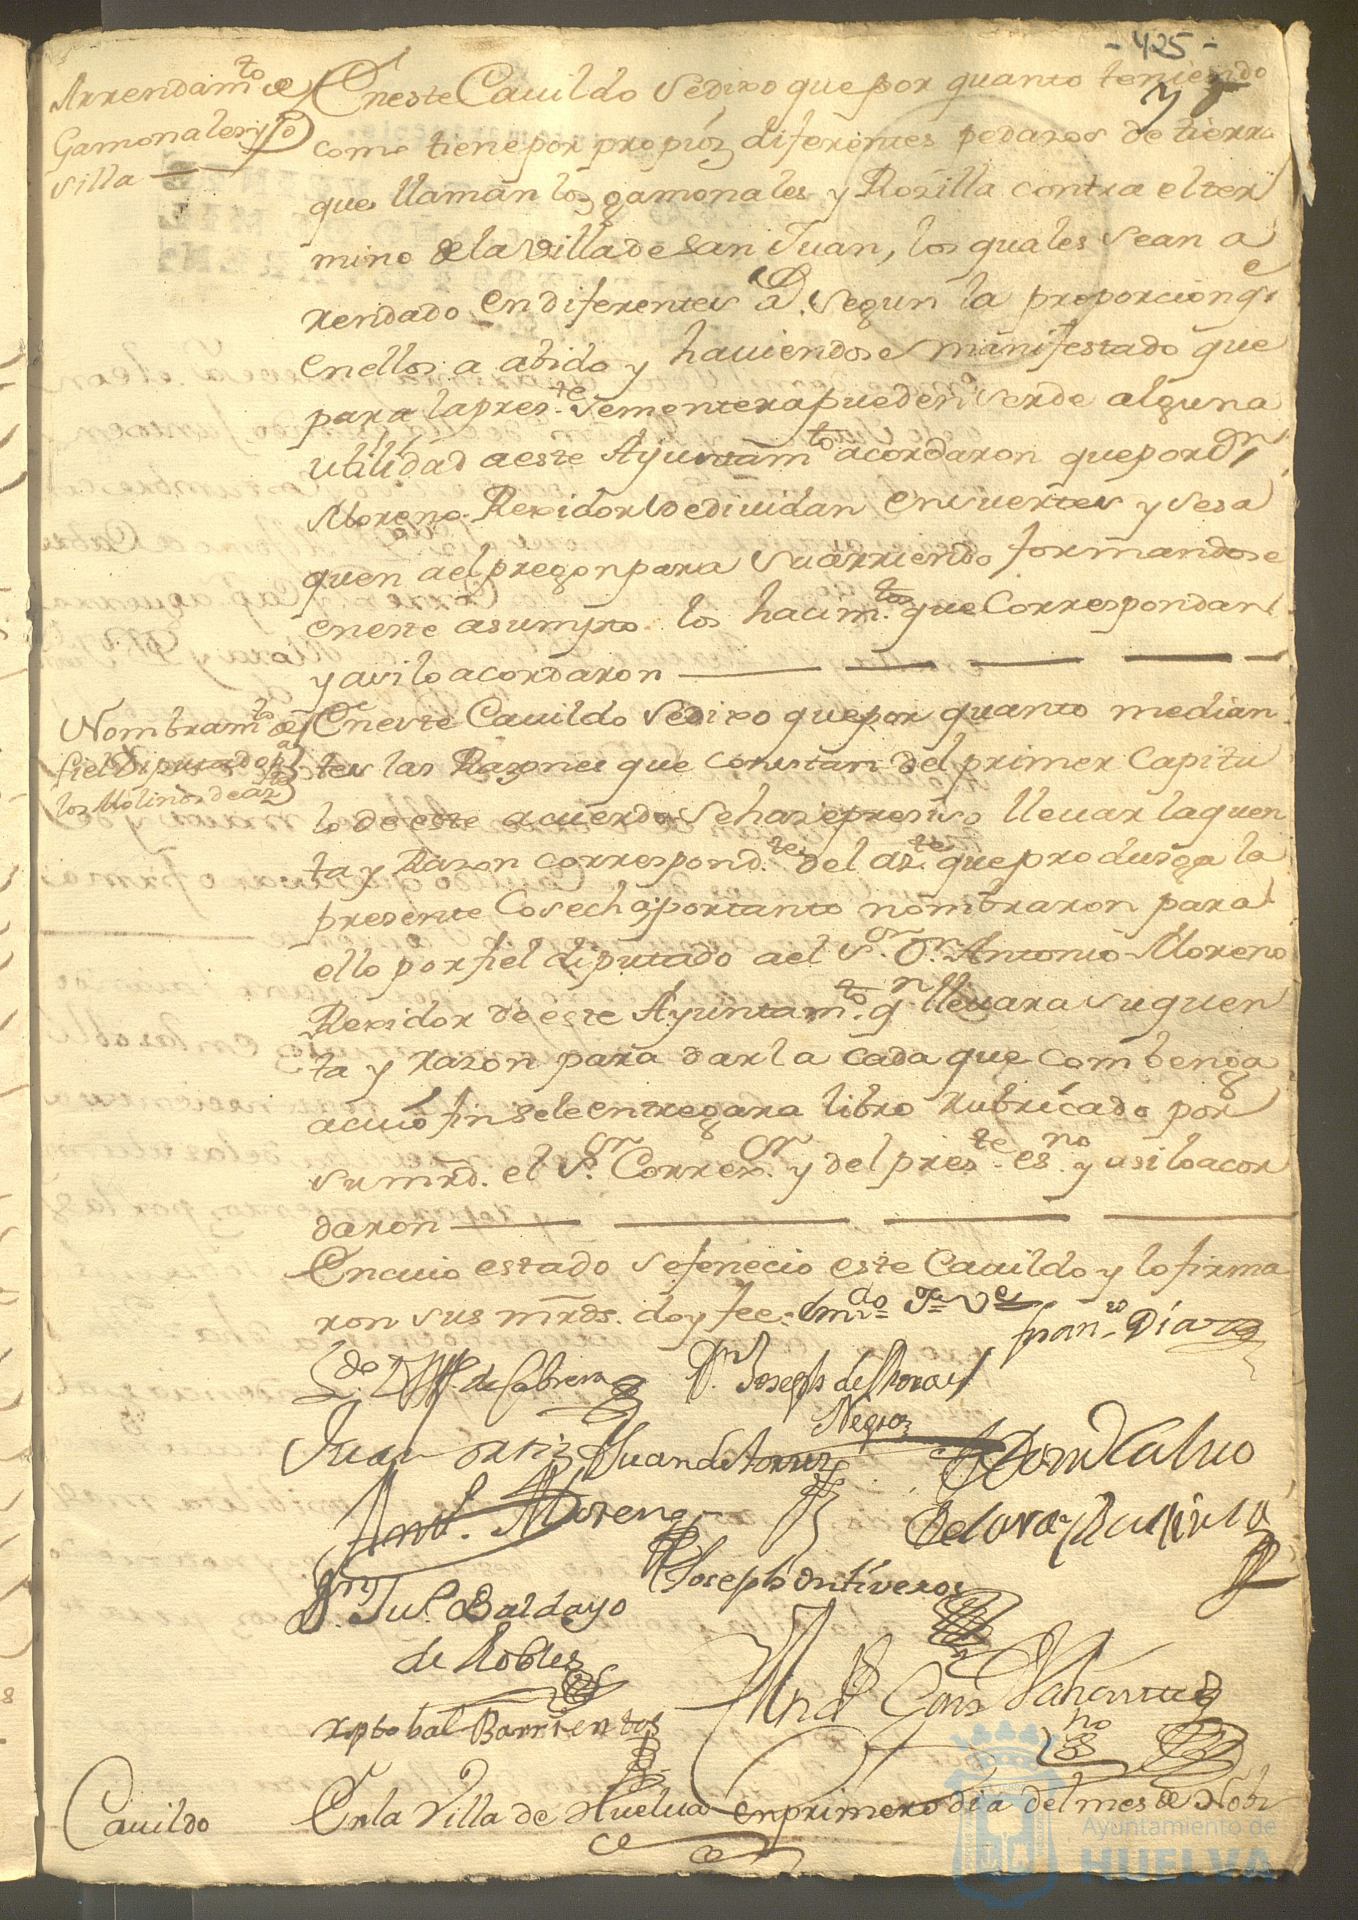 - 425 -
Arrendam.to de
Gamonales y Ro
silla
En este Cauildo Se dixo que por quanto teniendo
como tiene por propios diferentes pedazos de tierra
que llaman los gamonales y Rosilla contra el ter
mino de la Villa de San Juan, los quales Sean a
rendado en diferentes a.s Segun la proporcion q.e
en ellos a abido y hauiendose manifestado que
para la pres.te Sementera pueden Ser de alguna
utilidad a este Ayuntam.to acordaron que por Dn
Moreno Rexidor se diuidan en suertes y se sa
quen ael pregon para su arriendo formandose
en este asumpto los hacim.tos que Correspondan
y asi lo acordaron
Nombram.to de
fiel Diputado p.a
los Molinos de az.te
En este Cauildo Se dixo que por quanto median
tes las Razones que constan del primer Capitu
lo de este acuerdo Se haze presiso lleuar la quen
ta y Razon correspond.te del az.te que produsga la
presente Cosecha, por tanto nombraron para
ello por fiel diputado ael S.or D.n Antonio Moreno
Rexidor de este Ayuntam.to q.n lleuara su quen
ta y razon para darla cada que combenga
a cuio fin Se le entregara libro rubricado por
su mrd. el S.or Corre.or y del pres.te es.no y asi lo acor
daron
En cuio estado Se fenecio este Cauildo y lo firma
ron sus mrds. doy fee = Em.do
Fran.co Díaz
L.do de Cabrera
D.n Joseph de Mora
Negro
Juan Ortiz
Juan de
Calvo
Ant.o Moreno
de Lara
Joseph Ontiveros
D.n Ju.o Baldayo
de Robles
xptobal Barrientos
es.no
Cauildo
En la Villa de Huelua en primero dia del mes de Nobi
Ayuntamiento de
HUELVA